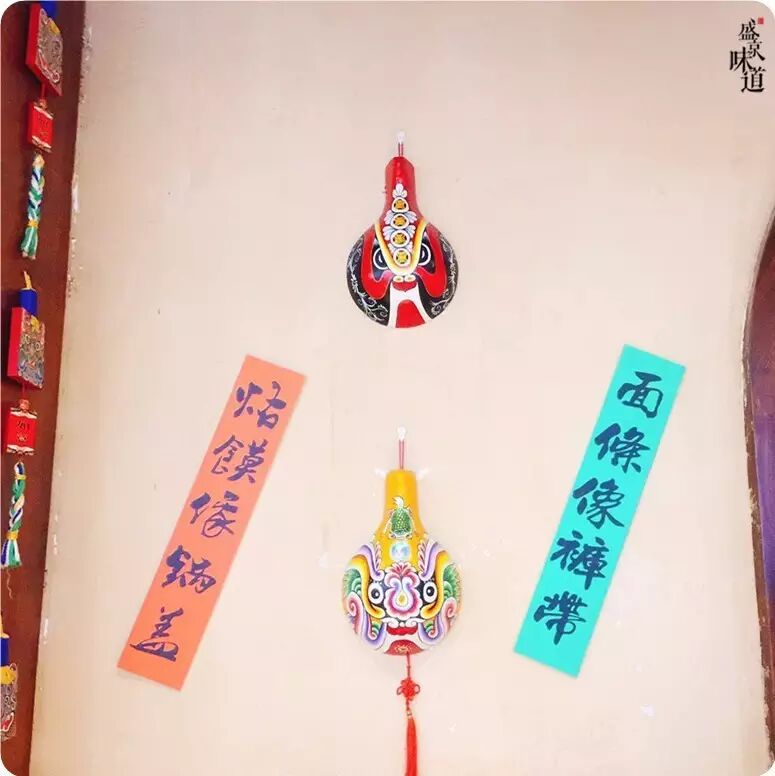 盛京味道
烙饃像鍋盖
面條像褲帶